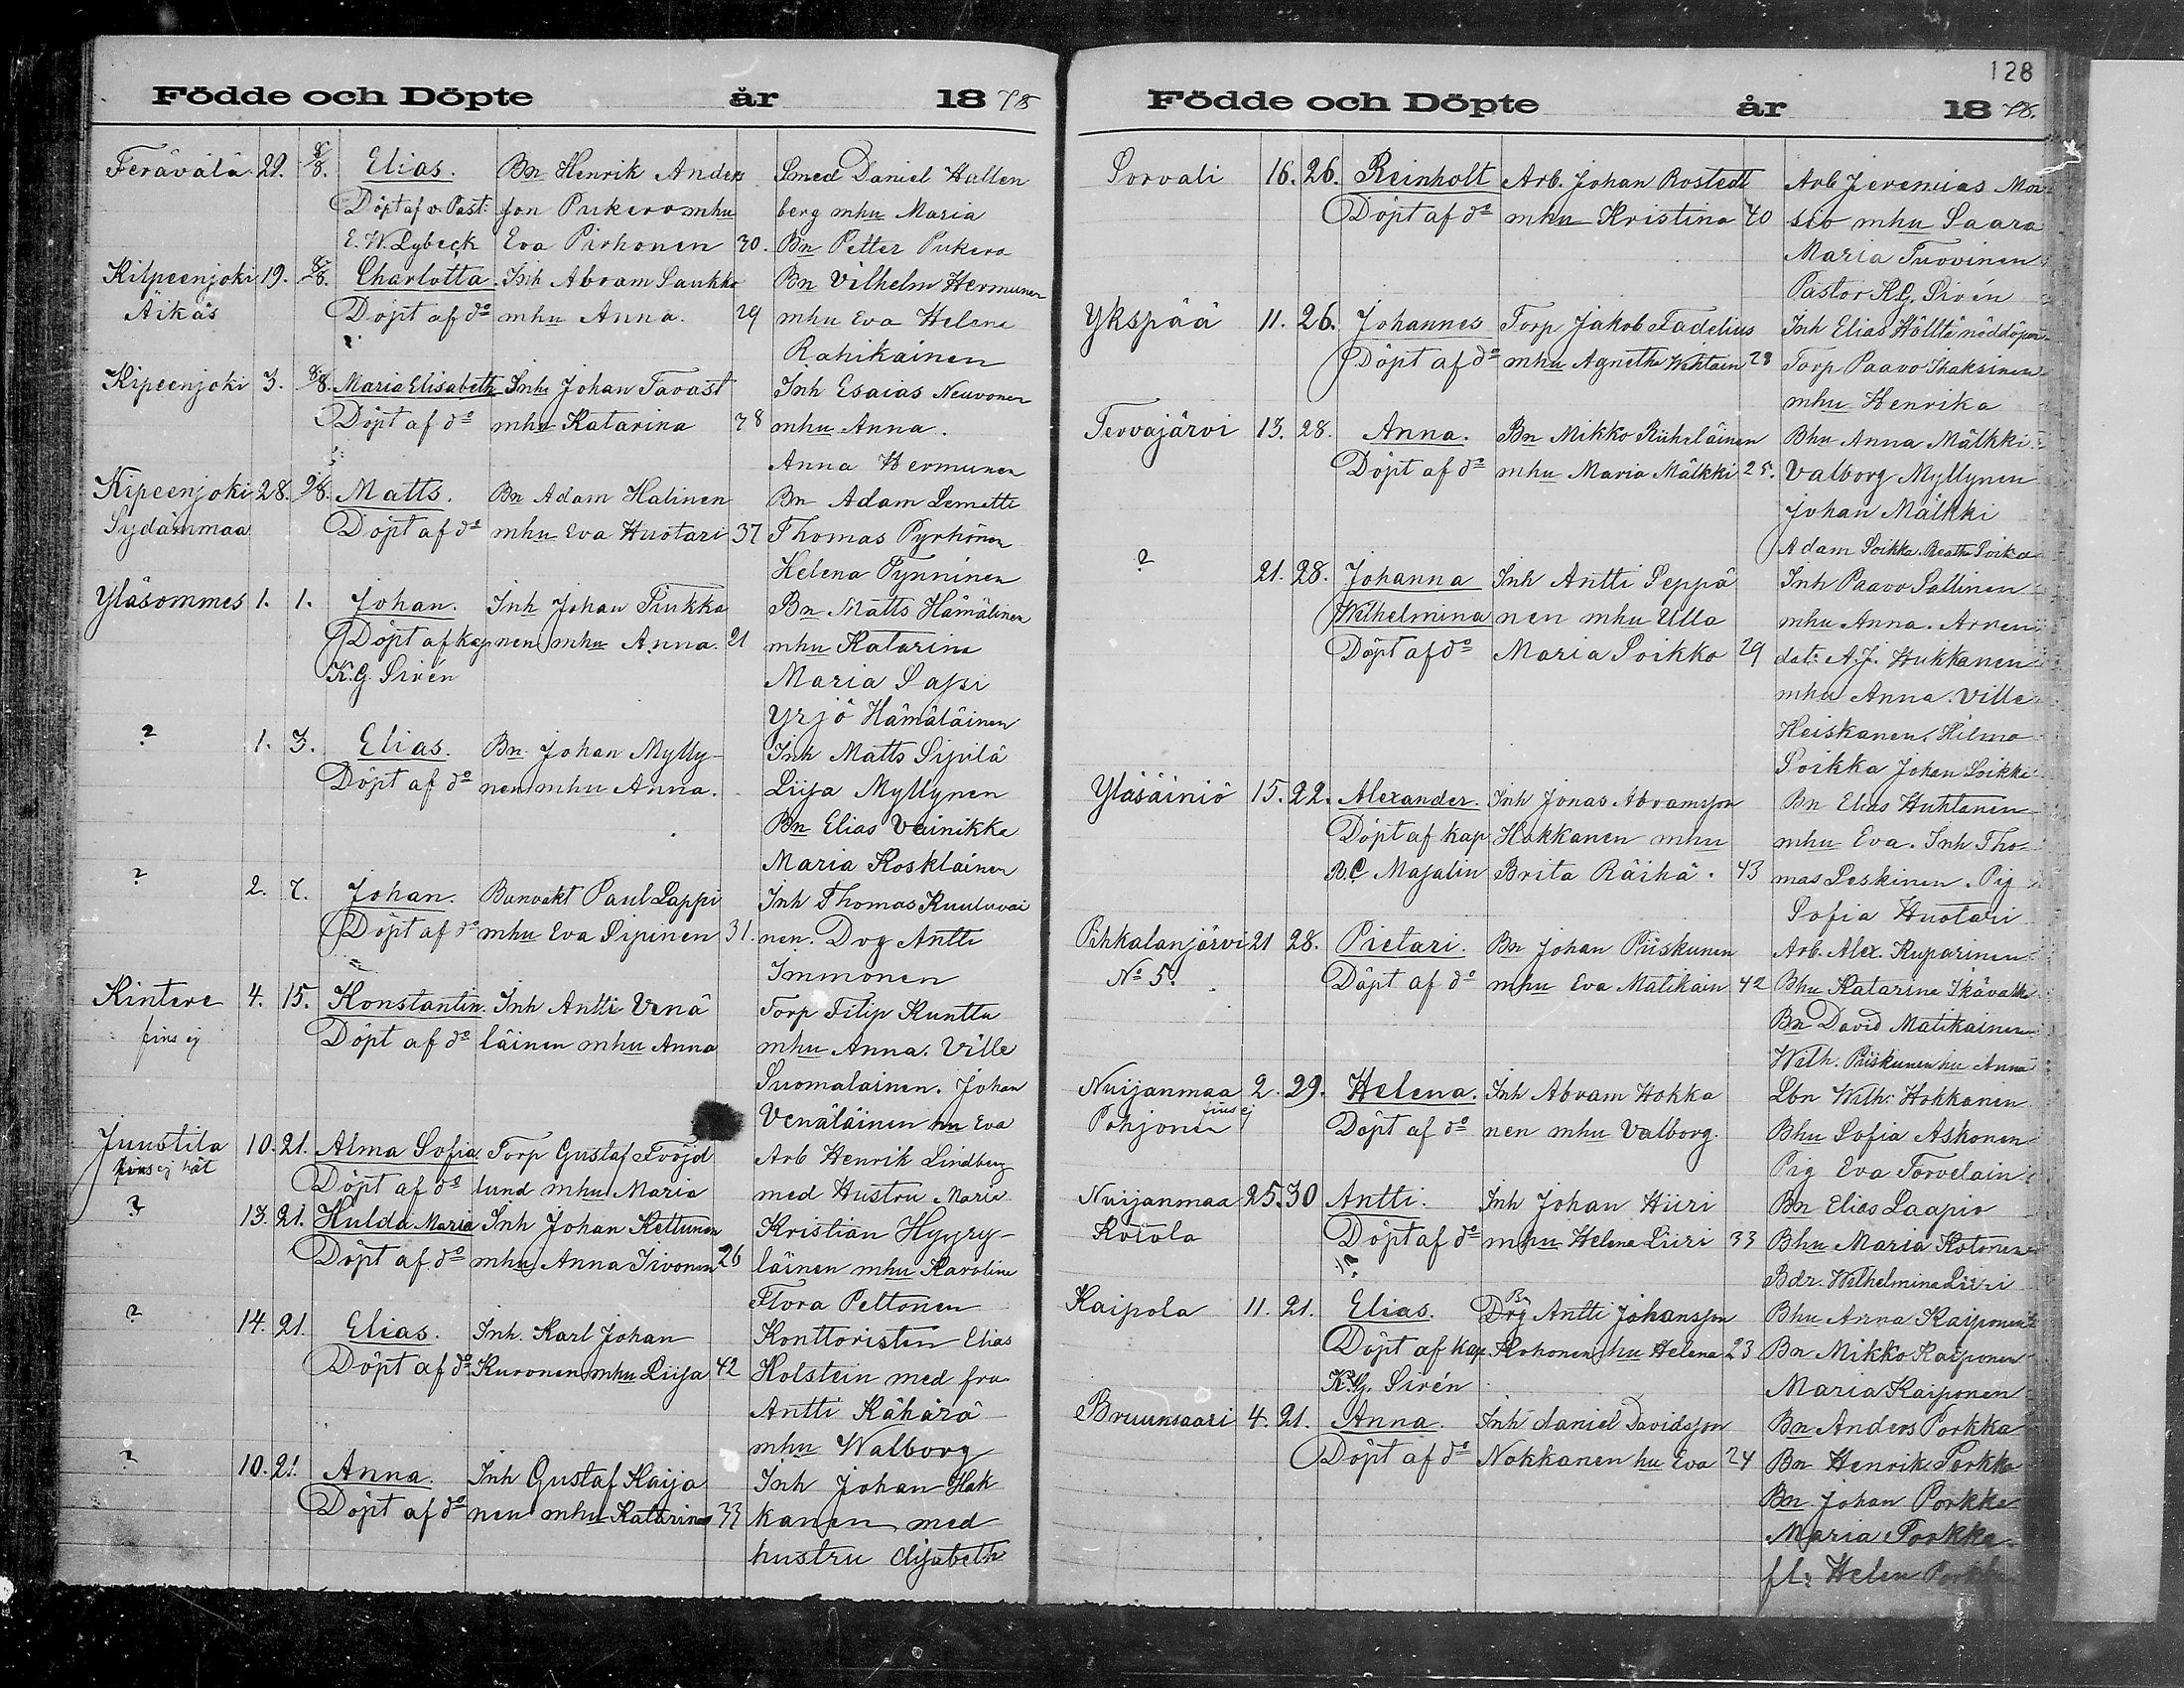 Födde och Döpte år 1878
Ferävälä 29. 8/8. Elias. Bn Henrik Anders Smed Daniel Hallen
Döpt af v. Past: son Pukero mhu berg mhu Maria
E. W. Lybeck Eva Pirhonen 30. Bn Petter Pukero
Kilpeenjoki 19. 8/8. Charlotta. Inh Abram Saukko Bn Vilhelm Hermunen
Äikäs Döpt af do mhu Anna. 29 mhu Eva Helena
Rahikainen
Kipeenjoki 3. 8/8. Maria Elisabeth Inh Johan Tavast Inh Esaias Neuvonen
Döpt af do mhu Katarina 38 mhu Anna.
Anna Hermunen
Kipeenjoki 28. 9/8. Matts. Bn Adam Halinen Bn Adam Lemetti
Sydämmaa Döpt af do mhu Eva Huotari 37 Thomas Pyrhönen
Helena Tynninen
Yläsommes 1. 1. Johan. Inh Johan Tiukka Bn Matts Hämälinen
Döpt af kap nen mhu Anna. 21 mhu Katarina
K. G. Sirén Maria Sapsi
Yrjö Hämäläinen
? 1. 3. Elias. Bn Johan Mylly- Inh Matts Sipilä
Döpt af do nen mhu Anna. Liisa Myllynen
Bn Elias Vainikka
Maria Kosklainen
? 2. 7. Johan. Banvakt Paul Lappi Inh Thomas Kuuluvai
Döpt af do mhu Eva Sipinen 31. nen. Drg Antti
Immonen
Kintere 4. 15. Konstantin. Inh Antti Venä Torp Filip Kunttu
fins ej Döpt af do läinen mhu Anna mhu Anna. Ville
Suomalainen. Johan
Venäläinen hu Eva
Juustila 10. 21. Alma Sofia Torp Gustaf Fröjd Arb Henrik Lindberg
fins ej Döpt af do lund mhu Maria med Hustru Maria
? 13. 21. Hulda Maria Inh Johan Kettunen Kristian Hyyry-
Döpt af do mhu Anna Iivonen 26 läinen mhu Karolina
Flora Peltonen
? 14. 21. Elias. Inh. Karl Johan Konttoristen Elias
Döpt af do Kuronen mhu Liisa 42 Holstein med fru
Antti Kähärä
mhu Walborg
? 10. 21. Anna. Inh Gustaf Kaija Inh Johan Hak
Döpt af do nen mhu Katarina 33 kanen med
hustru Elisabeth
128
Födde och Döpte år 1878.
Sorvali 16. 26. Reinholt Arb. Johan Rostedt Arb Jeremias Mor
Döpt af do mhu Kristina 40 sio mhu Saara
Maria Tuovinen
Pastor K. G. Sirén
Ykspää 11. 26. Johannes Torp Jakob Fadelius Inh Elias Hölttä nöddöpare
Döpt af do mhu Agnetha 28 Torp Paavo Ihaksinen
mhu Henrika
Tervajärvi 13. 28. Anna. Bn Mikko Riiheläinen Bhu Anna Mälkki
Döpt af do mhu Maria Mälkki 25. Valborg Myllynen
Johan Mälkki
Adam Soikka. Beata Soikka
? 21. 28. Johanna Inh Antti Seppä Inh Paavo Sallinen
Wilhelmina nen mhu Ulla mhu Anna. Arren
Döpt af do Maria Soikko 29 dat: A. J. Hukkanen
mhu Anna. Ville
Heiskanen. Hilma
Soikka Johan Soikka
Yläsäiniö 15. 22. Alexander. Inh Jonas Abramsson Bn Elias Huhtanen
Döpt af kap Hakkanen mhu mhu Eva. Inh Tho-
B. C. Majalin Brita Räihä. 43 mas Leskinen. Pig
Sofia Huotari
Pihkalanjärvi 21 28. Pietari. Bn Johan Piiskunen Arb. Alex. Kuparinen
No 5. Döpt af do mhu Eva Matikain 42 Bhu Katarina Ikävalko
Bn David Matikainen
Wilh. Piiskunen hu Anna
Nuijanmaa 2. 29. Helena. Inh Abram Hokka Lbn Wilh: Hokkanen
fins ej
Pohjonen Döpt af do nen mhu Valborg. Bhu Sofia Askonen
Pig Eva Torvelain
Nuijanmaa 25. 30 Antti. Inh Johan Hiiri Bn Elias Laapio
Kotola Döpt af do mhu Helena Liiri 33 Bhu Maria Kotonen
Bdr. Wilhelmina Liiri
Kaipola 11. 21. Elias. Drg Antti Johansson Bhu Anna Kaiponen
Döpt af kap Rohonen hu Helena 23 Bn Mikko Kaiponen
K. G. Sirén Maria Kaiponen
Bruunsaari 4. 21. Anna. Inh daniel Davidsson Bn Anders Porkka
Döpt af do Nokkanen hu Eva 24 Bn Henrik Porkka
Bn Johan Porkka
Maria Porkka.
fl: Helen Porkka